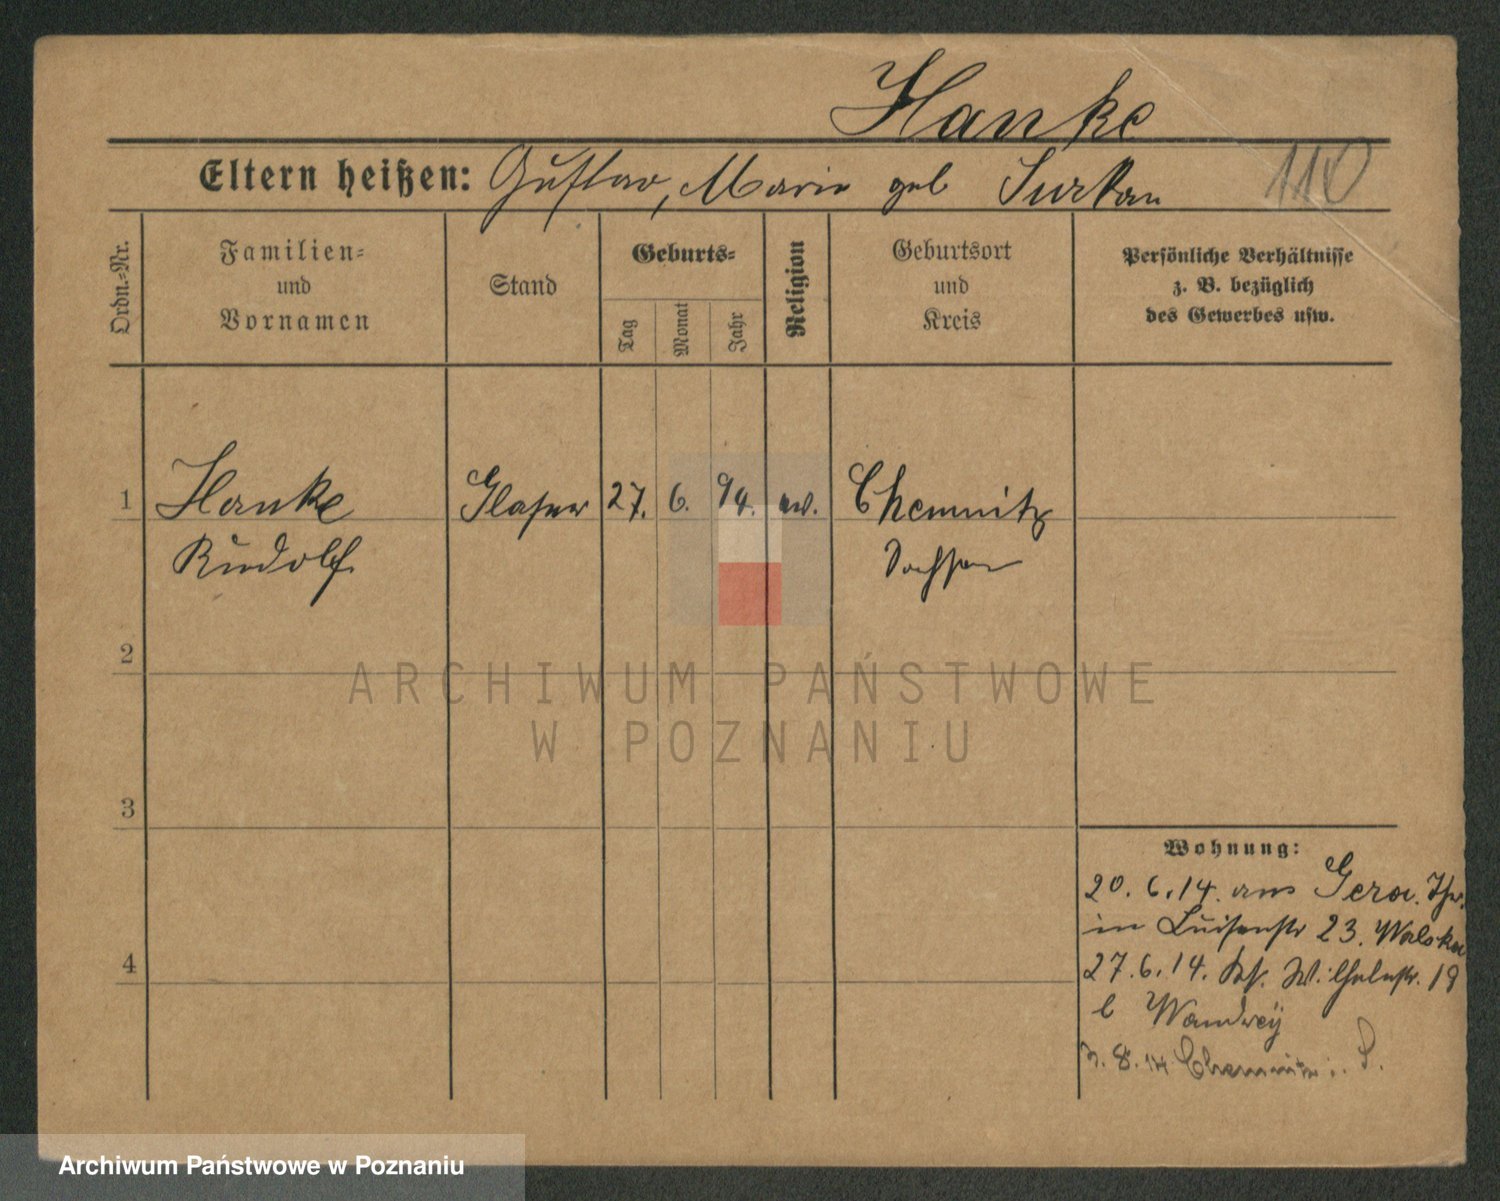 Hanke
Eltern heißen: Gustav, Marie geb Surkau
110
Ordn.-Nr.
Familien-
und
Vornamen
Stand
Geburts-
Tag
Monat
Jahr
Religion
Geburtsort
und
Kreis
Persönliche Verhältnisse
z. B. bezüglich
des Gewerbes usw.
1 Hanke Glaser 27. 6. 94. ev. Chemnitz
Rudolf Sachsen
2
3
4
Wohnung:
20. 6. 14. aus Gera. Thr.
in Luisenstr 23.
27. 6. 14. Wilhelmstr. 19
b Wandrey
8. 14 Chemnitz i. S.
ARCHIWUM PAŃSTWOWE
W POZNANIU
Archiwum Państwowe w Poznaniu